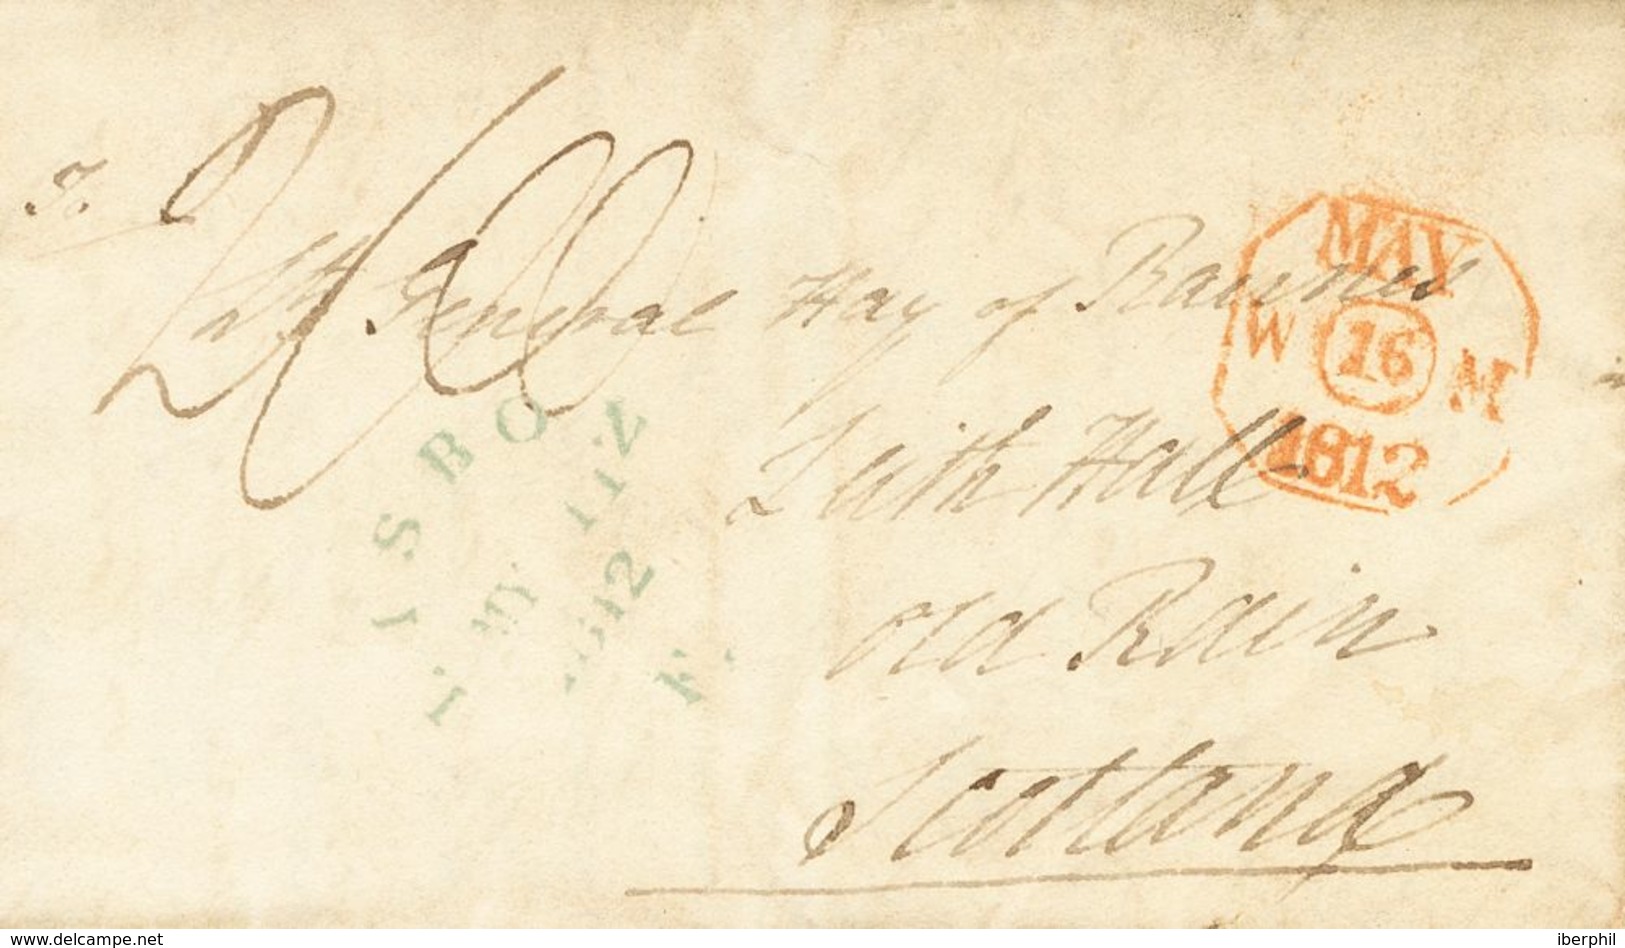 To
Lt. General Hay of Rannes
Leith Hall
old Rain
Scotland
MAY
W 16 M
1812
ISBON
MY 11
1812
F.
www.delcampe.net
iberphil